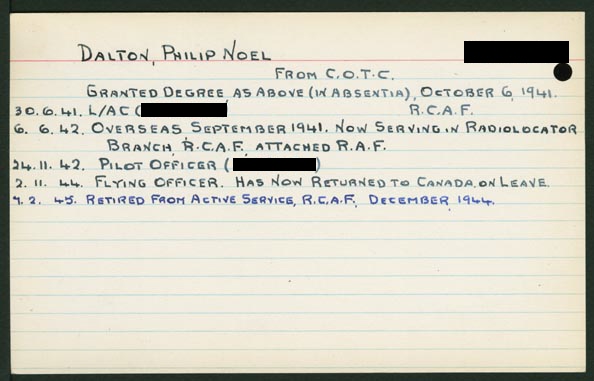 DALTON, PHILIP NOEL
FROM C.O.T.C.
GRANTED DEGREE AS ABOVE (IN ABSENTIA), OCTOBER 6, 1941.
30.6.41. L/AC ( R.C.A.F.
6. 6. 42. OVERSEAS SEPTEMBER 1941. NOW SERVING IN RADIOLOCATOR
BRANCH, R.C.A.F. ATTACHED R.A.F.
24.11. 42. PILOT OFFICER ( )
2. 11. 44. FLYING OFFICER. HAS NOW RETURNED TO CANADA, ON LEAVE.
9. 2. 45. RETIRED FROM ACTIVE SERVICE, R.C.A.F., DECEMBER, 1944.